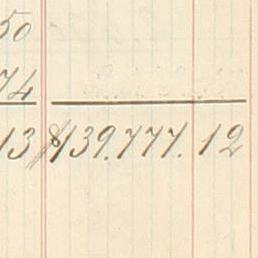 50
74
13 $139.777.12